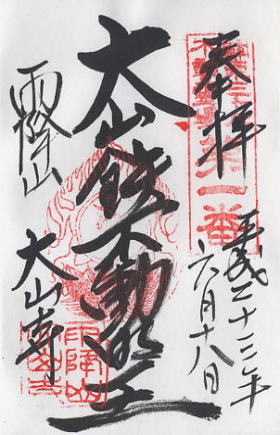 奉拝
第一番
平成二十三年
六月十八日
大山鐵不動明王
雨降山
大山寺
雨降山